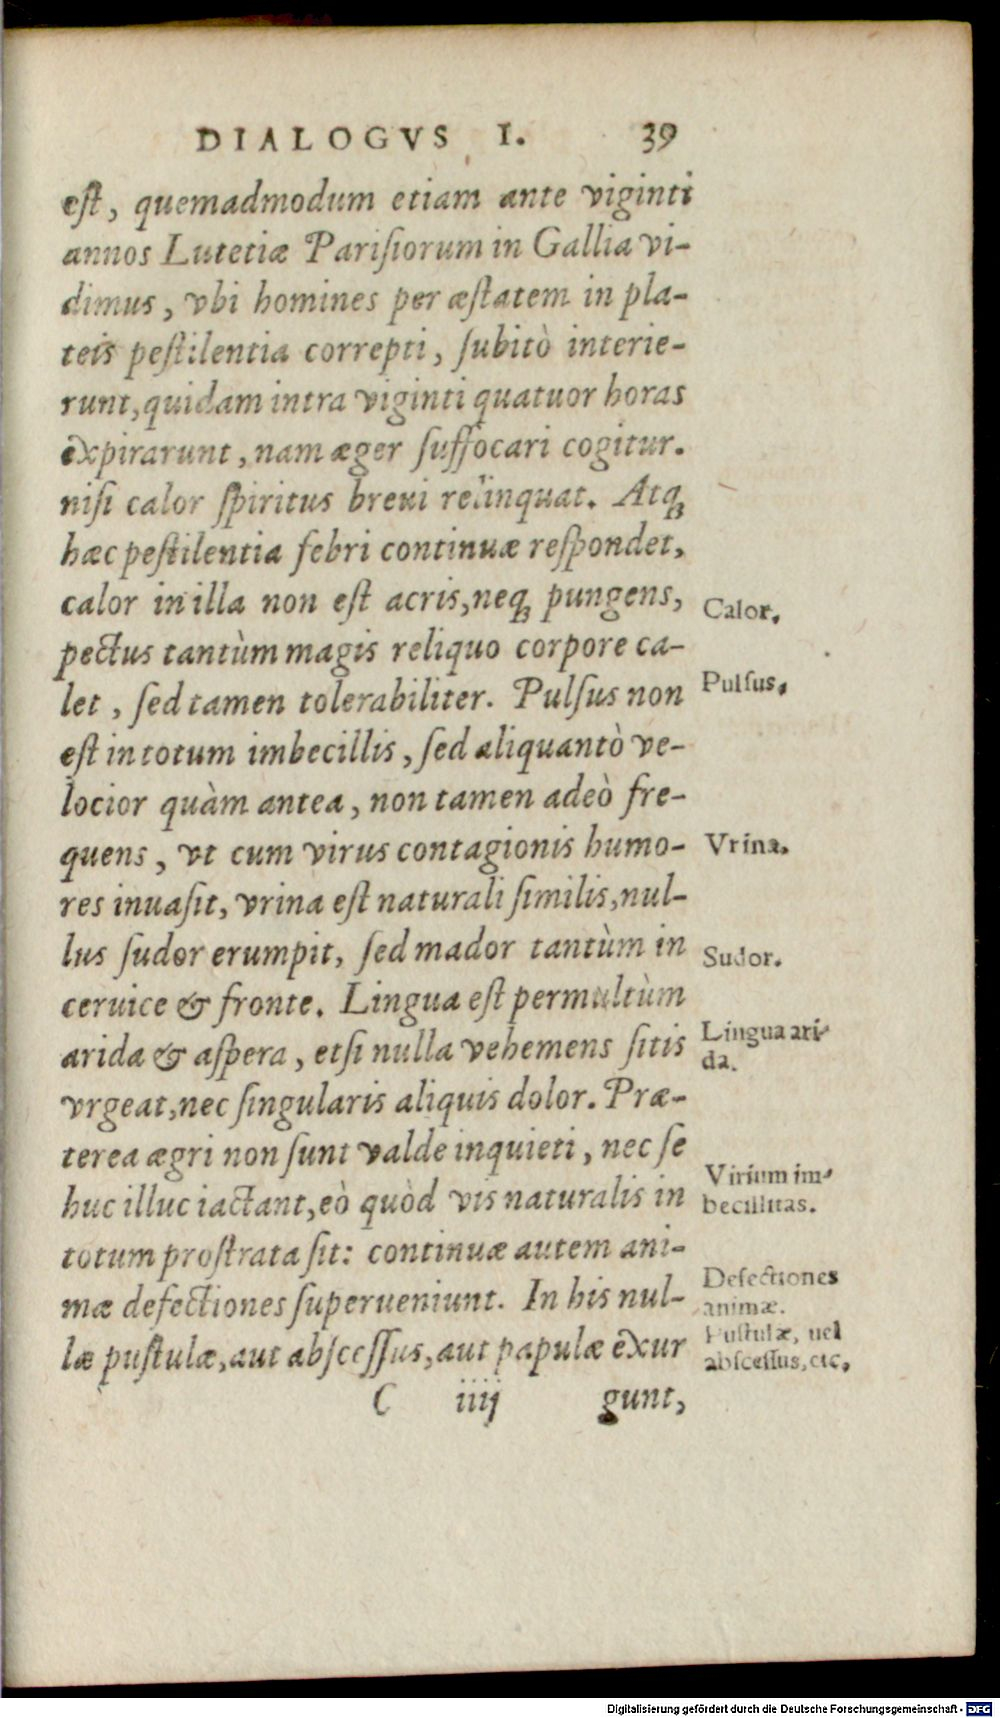 DIALOGVS I. 39
eſt, quemadmodum etiam ante viginti
annos Lutetiæ Pariſiorum in Gallia vi-
dimus, vbi homines per æſtatem in pla-
teis peſtilentia correpti, ſubitò interie-
runt, quidam intra viginti quatuor horas
expirarunt, nam æger ſuffocari cogitur.
niſi calor ſpiritus breui relinquat. Atq;
hæc peſtilentia febri continuæ reſpondet,
calor in illa non eſt acris, neq; pungens,
Calor.
pectus tantùm magis reliquo corpore ca-
let, ſed tamen tolerabiliter. Pulſus non
Pulſus,
eſt in totum imbecillis, ſed aliquantò ve-
locior quàm antea, non tamen adeò fre-
quens, vt cum virus contagionis humo-
Vrina.
res inuaſit, vrina eſt naturali ſimilis, nul-
lus ſudor erumpit, ſed mador tantùm in
Sudor.
ceruice & fronte. Lingua eſt permultùm
arida & aſpera, etſi nulla vehemens ſitis
Lingua ari-
da.
vrgeat, nec ſingularis aliquis dolor. Præ-
terea ægri non ſunt valde inquieti, nec ſe
huc illuc iactant, eò quòd vis naturalis in
Virium im-
becillitas.
totum proſtrata ſit: continuæ autem ani-
mæ defectiones ſuperueniunt. In his nul-
Defectiones
animæ.
læ puſtulæ, aut abſceſſus, aut papulæ exur
Puſtulæ, uel
abſceſſus, etc.
C iiij gunt,
Digitalisierung gefördert durch die Deutsche Forschungsgemeinschaft - DFG